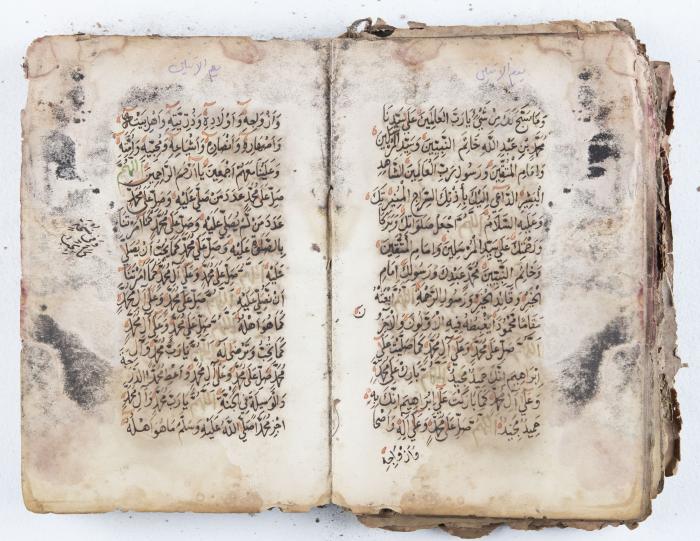 يوم الاثنين
وما سبح لك من شيء يا رب العالمين على سيدنا
محمد بن عبد الله خاتم النبيين وسيد المرسلين
وامام المتقين ورسول رب العالمين الشاهد
البشير الداعي اليك باذنك السراج المنير
وعليه السلام اللهم اجعل صلواتك وبركاتك
ورحمتك على سيد المرسلين وامام المتقين
وخاتم النبيين محمد عبدك ورسولك امام
الخير وقائد الخير ورسول الرحمة اللهم ابعثه
مقاما محمودا يغبطه فيه الاولون والاخرون
اللهم صل على محمد وعلى آل محمد كما صليت على
ابراهيم انك حميد مجيد اللهم بارك على محمد
وعلى آل محمد كما باركت على ابراهيم انك
حميد مجيد اللهم صل على محمد وعلى اله واصحابه
وازواجه
يوم الاثنين
وازواجه واولاده وذريته واهل بيته
واصهاره وانصاره واشياعه ومحبيه وامته
وعلينا معهم اجمعين يا ارحم الراحمين اللهم
صل على محمد عدد من صلى عليه وصل على محمد
عدد من لم يصل عليه وصل على محمد كما امرتنا
بالصلاة عليه وصل على محمد كما تحب ان يصلى
عليه اللهم صل على محمد وعلى آل محمد كما امرتنا
ان نصلي عليه اللهم صل على محمد وعلى آل محمد
كما هو اهله اللهم صل على محمد وعلى آل محمد
كما تحب وترضى له اللهم يا رب محمد وآل محمد
صل على محمد وعلى آل محمد واعط محمدا الدرجة
والوسيلة في الجنة اللهم يا رب محمد وآل محمد
اجز محمدا صلى الله عليه وسلم ما هو اهله